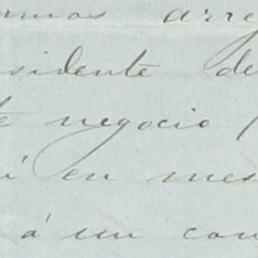 arre
sidente de
negocio
en mes
á un con